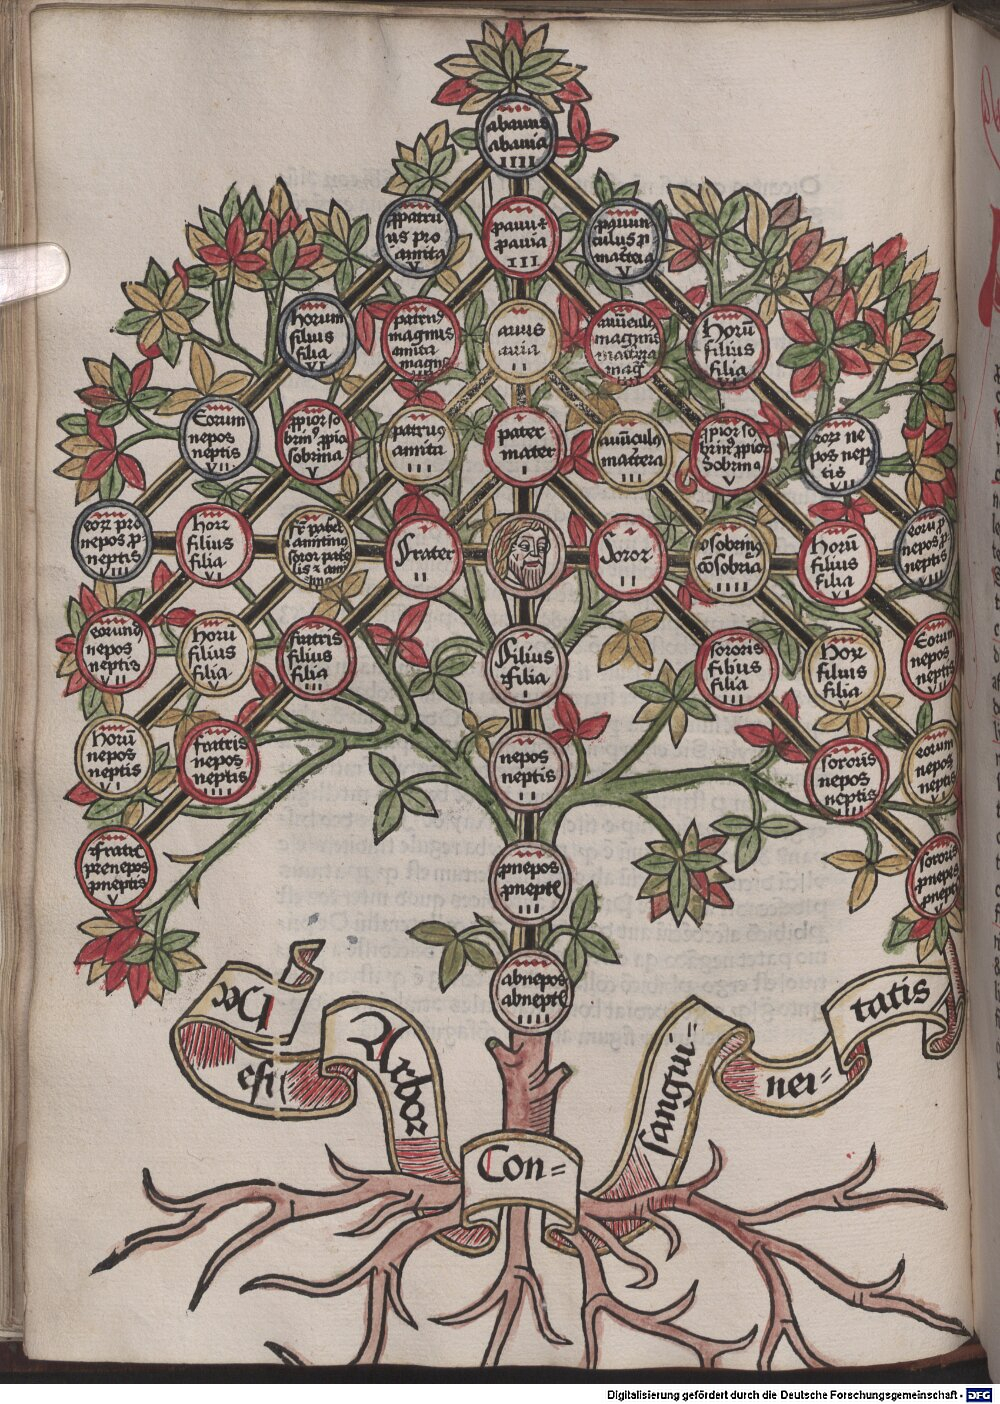 abauus
abauia
IIII
ꝓpatru
us pro
amita
V
ꝓauuꝰ
ꝓauia
III
ꝓauun
culus ꝓ
matt̄era
V
horum
filius
filia
VI
patruꝰ
magnus
amita
magna
auūculꝰ
magnus
matt̄era
mag
auus
auia
II
Horū
filius
filia
VI
Eorum
nepos
neptis
VII
ꝓpior so
brinꝰ ꝓpia
sobrina
V
patruꝰ
amita
III
pater
mater
I
auūculꝰ
matt̄era
III
ꝓpior so
brinꝰ ꝓpior
sobrina
V
eoꝝ ne
pos nep
tis
VII
eoꝝ pro
nepos ꝓ
neptis
VIII
Hoꝝ
filius
filia
VI
soror
Frater
II
Soror
II
ɔsobrinꝰ
cōsobrīa
IIII
Horū
filius
filia
VI
eoru ꝓ
nepos ꝓ
neptis
VIII
eorundē
nepos
neptis
VII
Horū
filius
filia
V
fratris
filius
filia
III
Filius
filia
I
sororis
filius
filia
III
Hoꝝ
filius
filia
V
Eorum
nepos
neptis
VII
Horū
nepos
neptis
VI
fratris
nepos
neptis
IIII
nepos
neptis
II
sororis
nepos
neptis
IIII
eorum
nepos
neptis
fratris
pronepos
ꝓneptis
V
ꝓnepos
ꝓneptꝭ
III
sororis
ꝓnepos
ꝓneptꝭ
abnepos
abneptꝭ
IIII
Hec
est
Arbor
Con=
sangui=
nei=
tatis
Digitalisierung gefördert durch die Deutsche Forschungsgemeinschaft - DFG